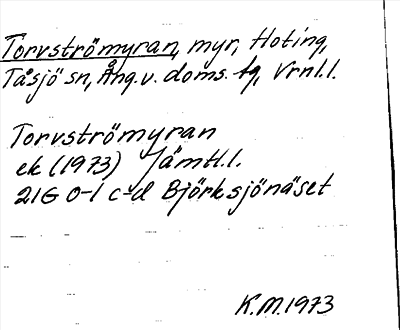 Torvströmyran, myr, Hoting,
Tåsjö sn, Ång.v. doms. tg, Vrnl.l.
Torvströmyran
ek (1973) Jämtl.l.
21G 0-1 c-d Björksjönäset
K.M. 1973